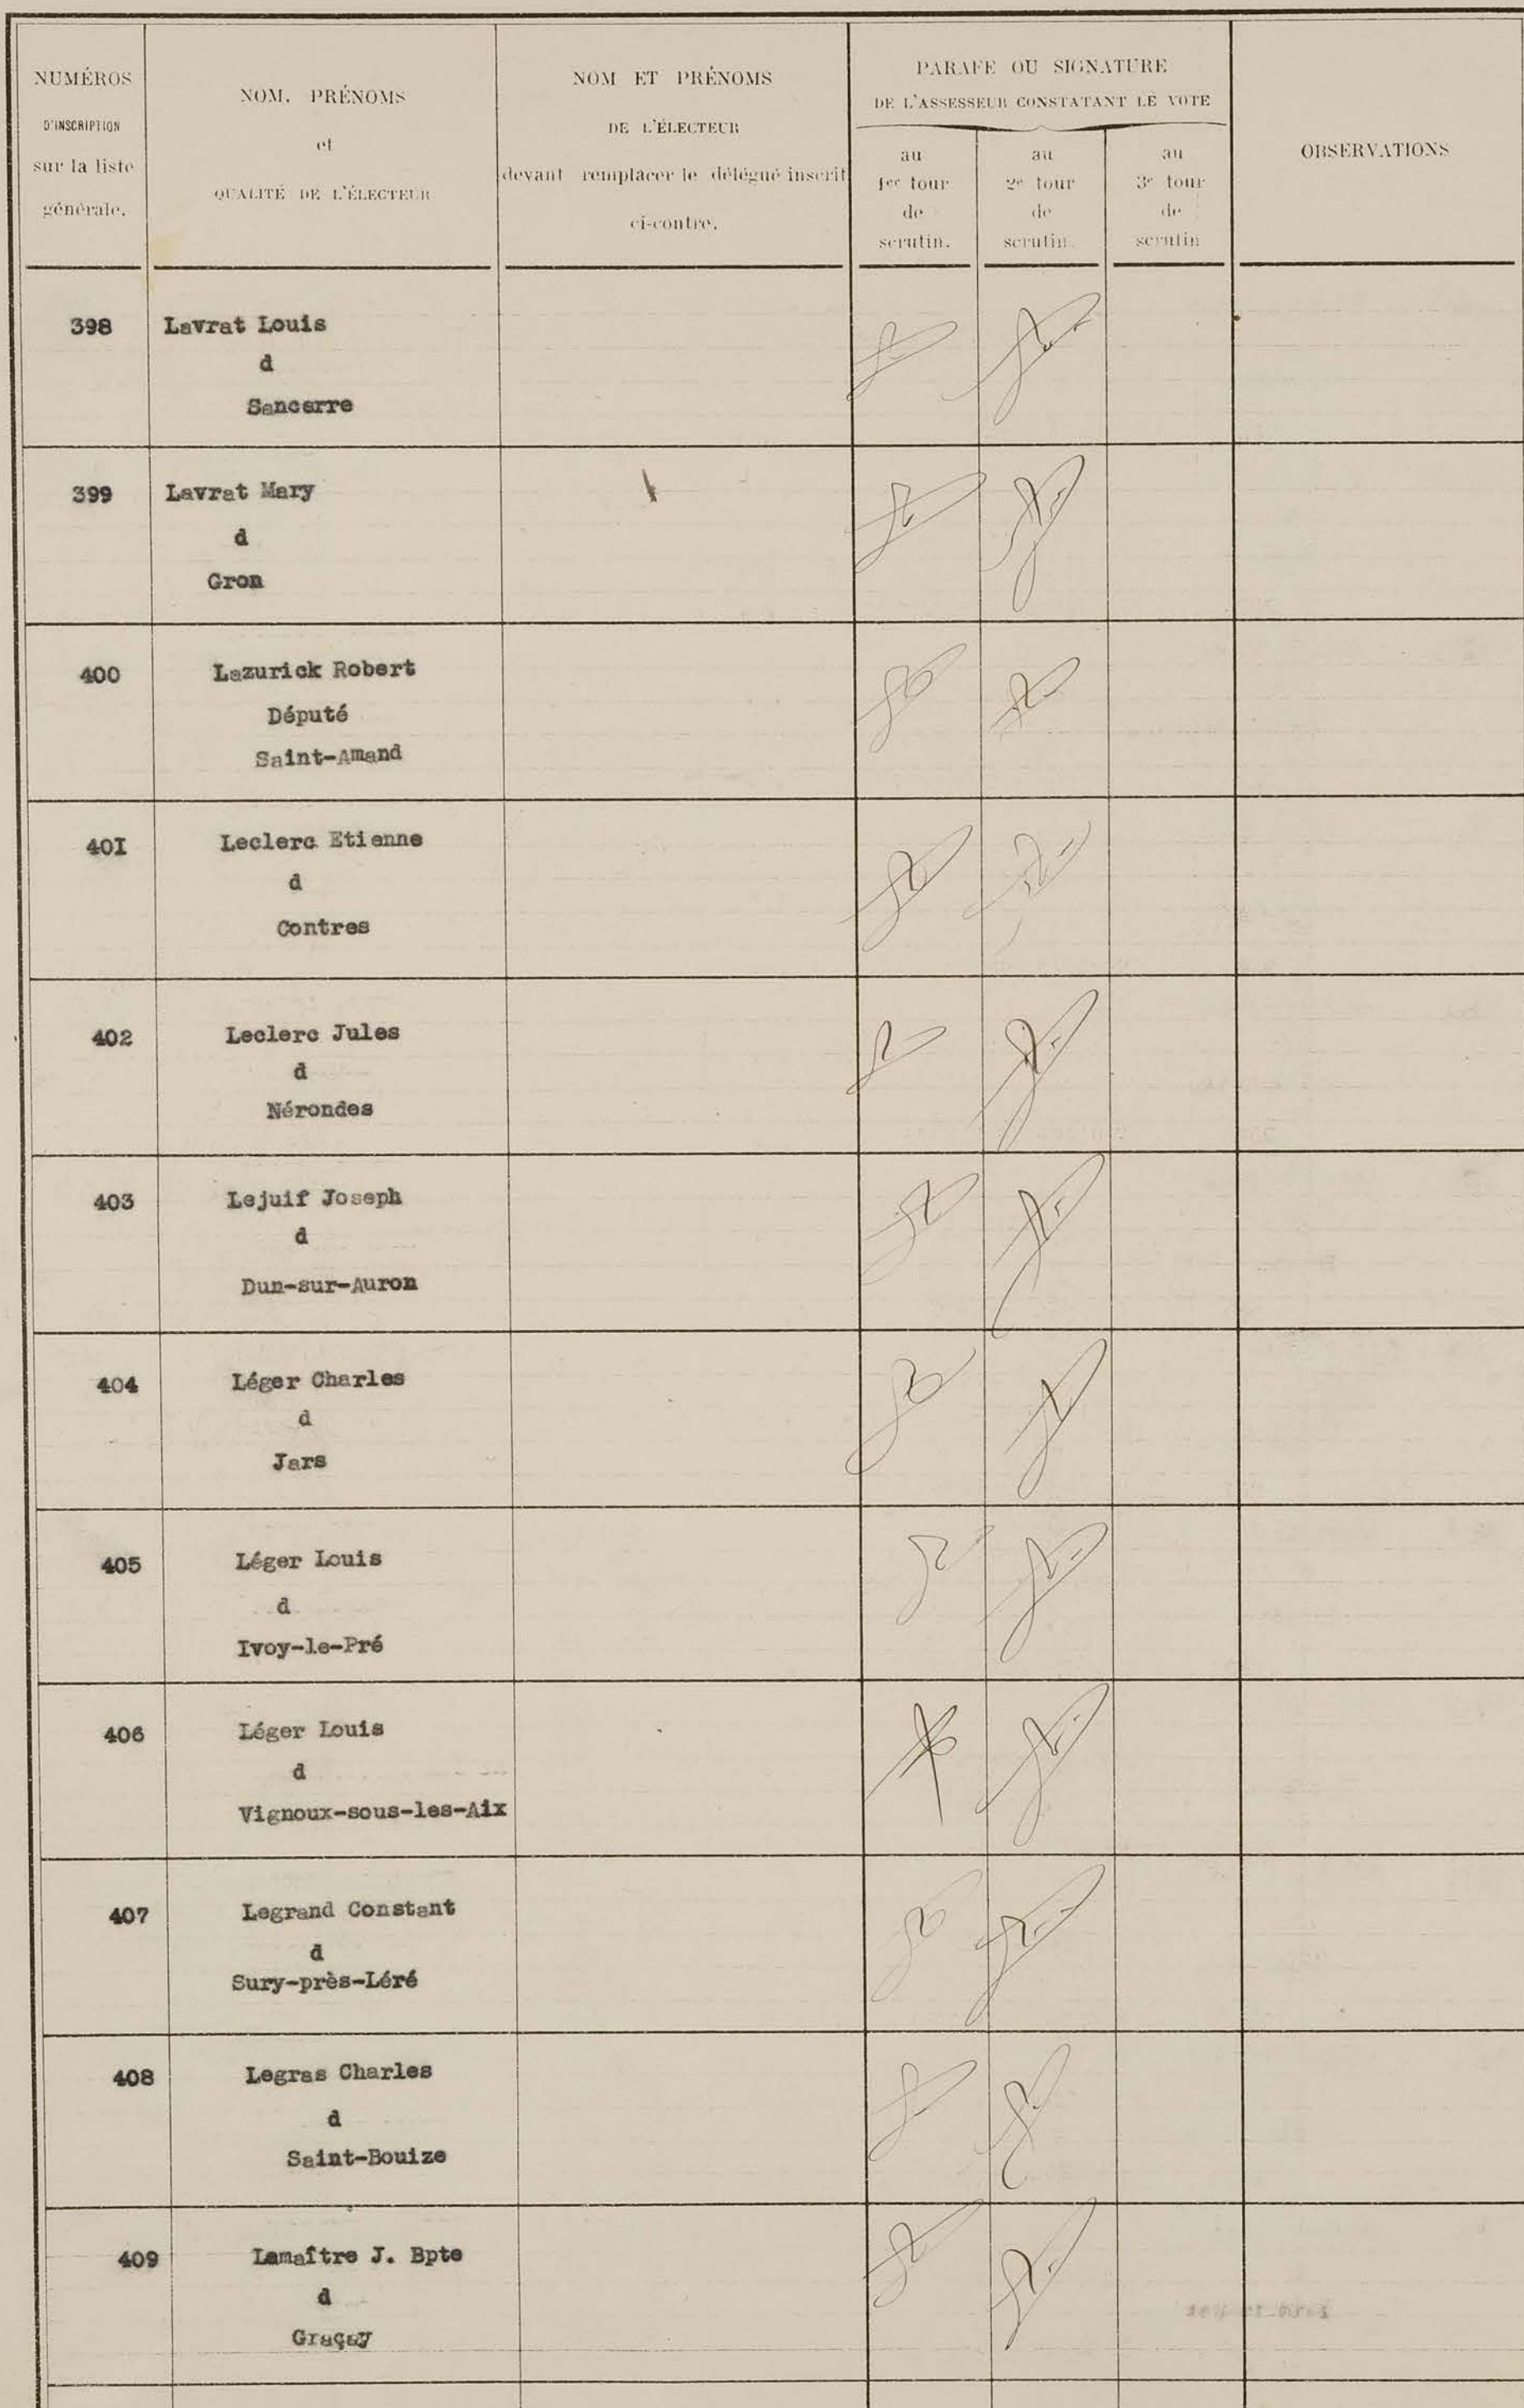 NUMÉROS
D'INSCRIPTION
sur la liste
générale.
NOM, PRÉNOMS
et
QUALITÉ DE L'ÉLECTEUR
NOM ET PRÉNOMS
DE L'ÉLECTEUR
devant remplacer le délégué inscrit
ci-contre.
PARAFE OU SIGNATURE
DE L'ASSESSEUR CONSTATANT LE VOTE
au
1er tour
de
scrutin.
au
2e tour
de
scrutin.
au
3e tour
de
scrutin
OBSERVATIONS
398 Lavrat Louis
d
Sancerre
399 Lavrat Mary
d
Gron
400 Lazurick Robert
Député
Saint-Amand
40I Leclerc Etienne
d
Contres
402 Leclerc Jules
d
Nérondes
403 Lejuif Joseph
d
Dun-sur-Auron
404 Léger Charles
d
Jars
405 Léger Louis
d
Ivoy-le-Pré
406 Léger Louis
d
Vignoux-sous-les-Aix
407 Legrand Constant
d
Sury-près-Léré
408 Legras Charles
d
Saint-Bouize
409 Lemaître J. Bpte
d
Graçay